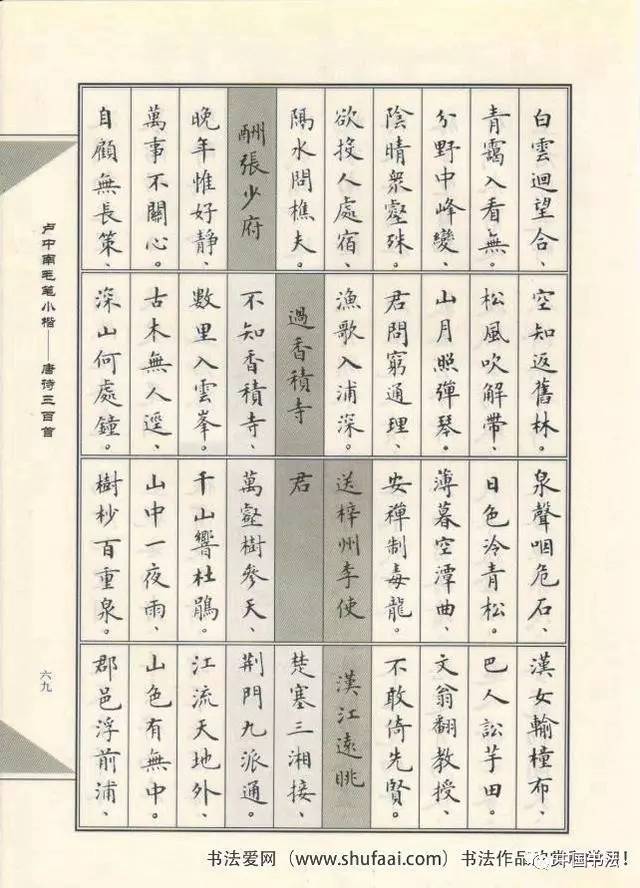 白雲迴望合、
青靄入看無。
分野中峰變、
陰晴衆壑殊。
欲投人處宿、
隔水問樵夫。
酬張少府
晚年惟好靜、
萬事不關心。
自顧無長策、
空知返舊林。
松風吹解帶、
山月照彈琴。
君問窮通理、
漁歌入浦深。
過香積寺
不知香積寺、
數里入雲峯。
古木無人逕、
深山何處鐘。
泉聲咽危石、
日色冷青松。
薄暮空潭曲、
安禪制毒龍。
送梓州李使
君
萬壑樹參天、
千山響杜鵑。
山中一夜雨、
樹杪百重泉。
漢女輸橦布、
巴人訟芋田。
文翁翻教授、
不敢倚先賢。
漢江遠眺
楚塞三湘接、
荆門九派通。
江流天地外、
山色有無中。
郡邑浮前浦、
卢中南毛笔小楷——唐诗三百首
六九
书法爱网（www.shufaai.com）书法作品欣赏
中国书法